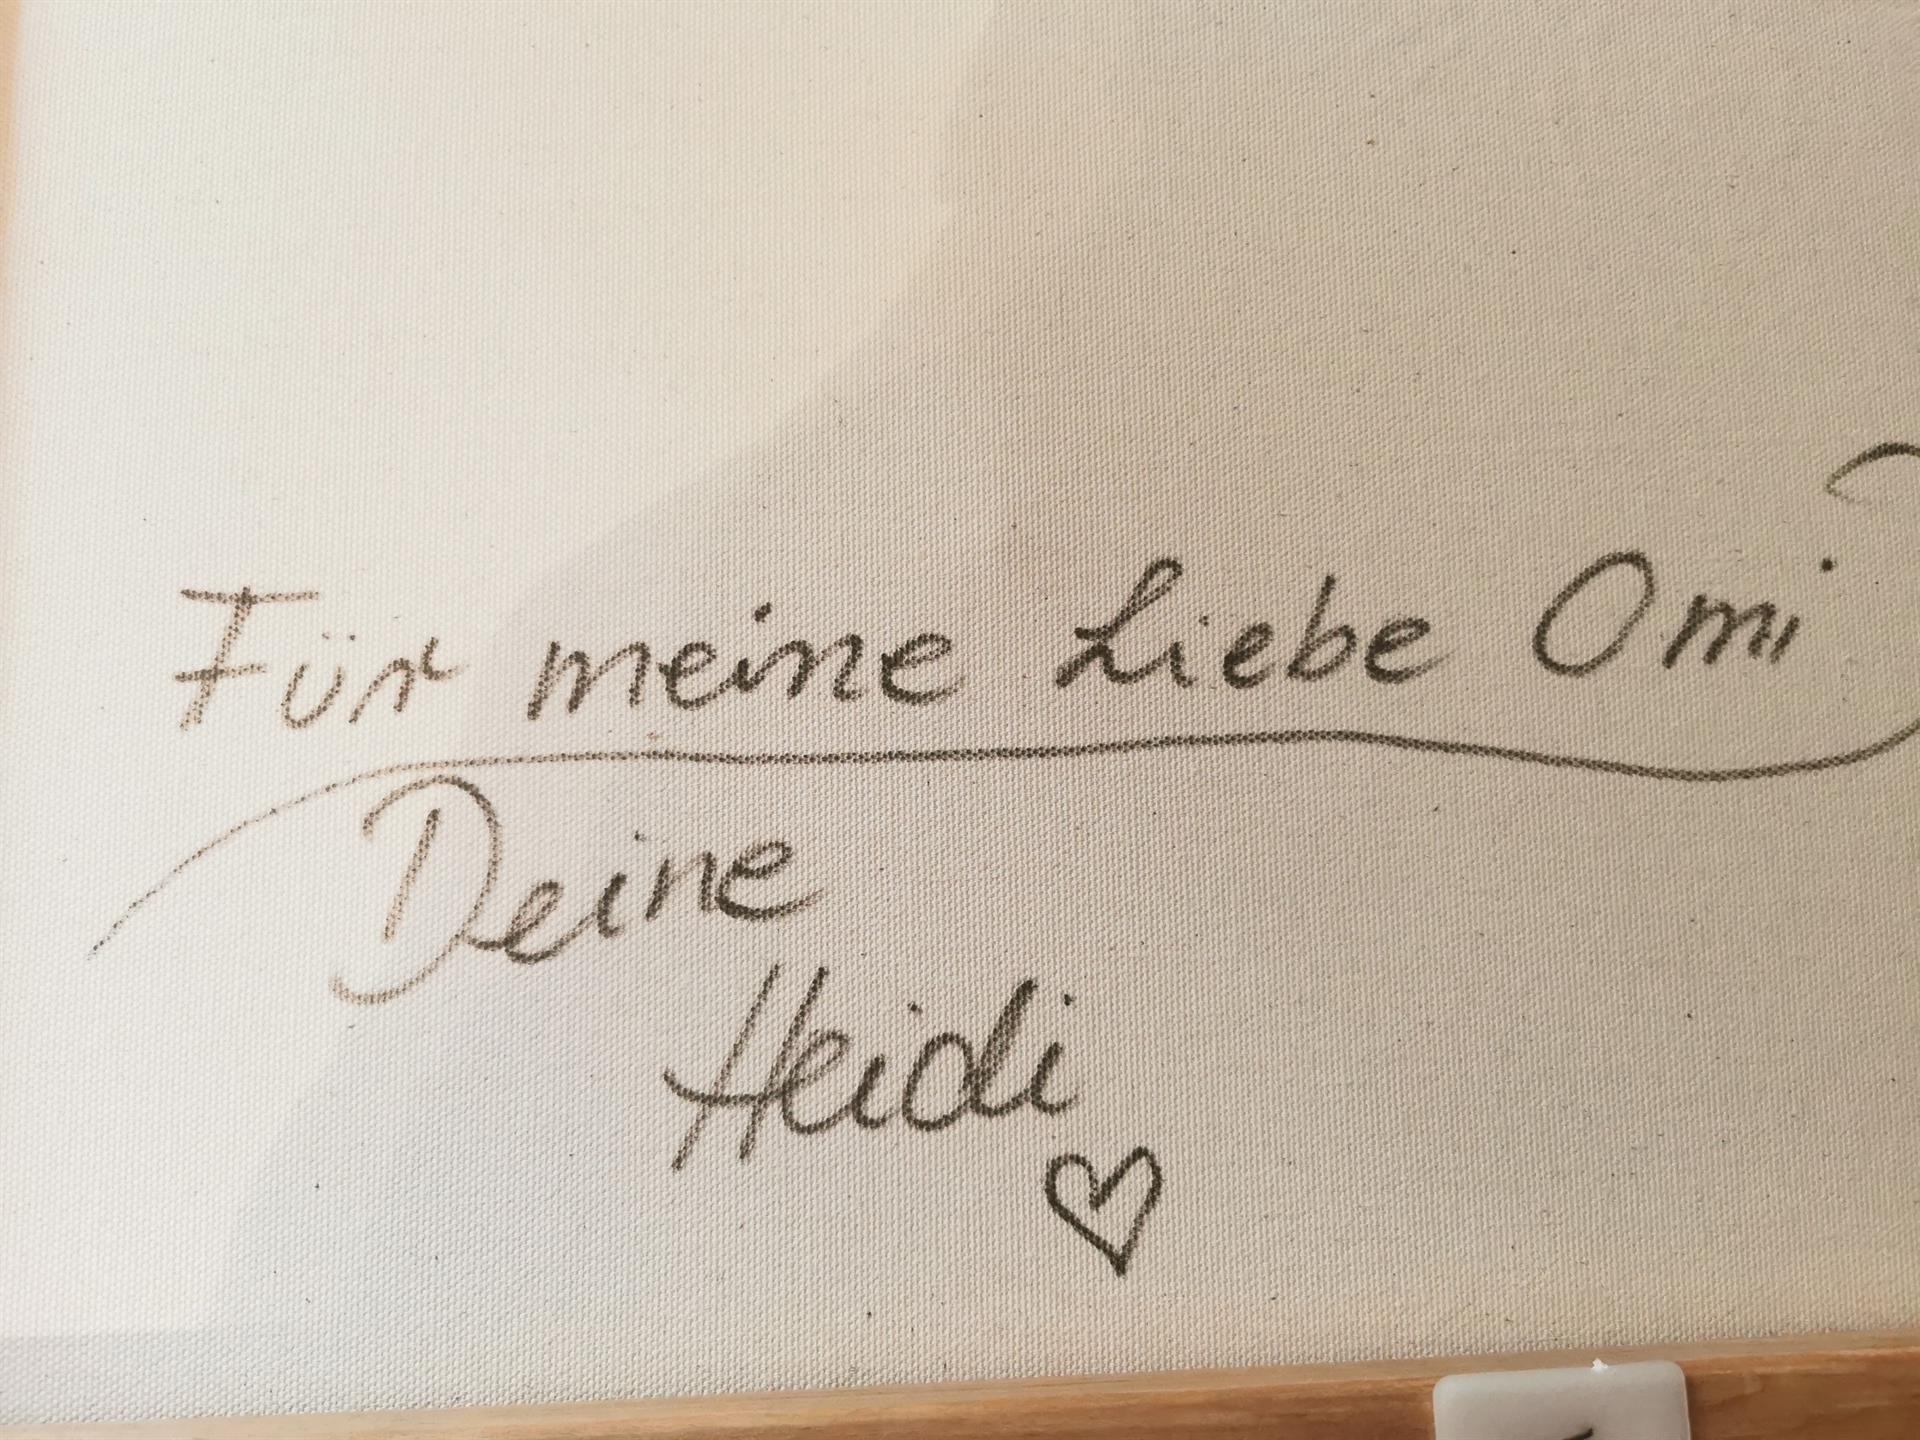 Für meine Liebe Omi
Deine
Heidi